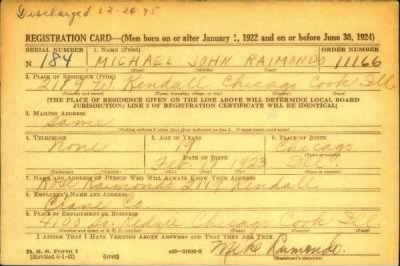 Discharged 12-26-45
REGISTRATION CARD—(Men born on or after January 1, 1922 and on or before June 30, 1924)
SERIAL NUMBER 1. NAME (Print) ORDER NUMBER
N 184 MICHAEL JOHN RAIMONDO 11166
(First) (Middle) (Last)
2. PLACE OF RESIDENCE (Print)
2119 W. Kendall Chicago Cook Ill
(Number and street) (Town, township, village, or city) (County) (State)
[THE PLACE OF RESIDENCE GIVEN ON THE LINE ABOVE WILL DETERMINE LOCAL BOARD
JURISDICTION; LINE 2 OF REGISTRATION CERTIFICATE WILL BE IDENTICAL]
3. MAILING ADDRESS
Same
[Mailing address if other than place indicated on line 2. If same insert word same]
4. TELEPHONE 5. AGE IN YEARS 6. PLACE OF BIRTH
None 19 Chicago
DATE OF BIRTH
Feb. 1923 Ill
7. NAME AND ADDRESS OF PERSON WHO WILL ALWAYS KNOW YOUR ADDRESS
Rose Raimondo 2119 Kendall
8. EMPLOYER'S NAME AND ADDRESS
Crane Co.
9. PLACE OF EMPLOYMENT OR BUSINESS
4100 So. Kedzie Chicago Cook Ill.
I AFFIRM THAT I HAVE VERIFIED ABOVE ANSWERS AND THAT THEY ARE TRUE.
D. S. S. Form 1
(Revised 6-1-42) (over) Mike Raimondo
(Registrant's signature)